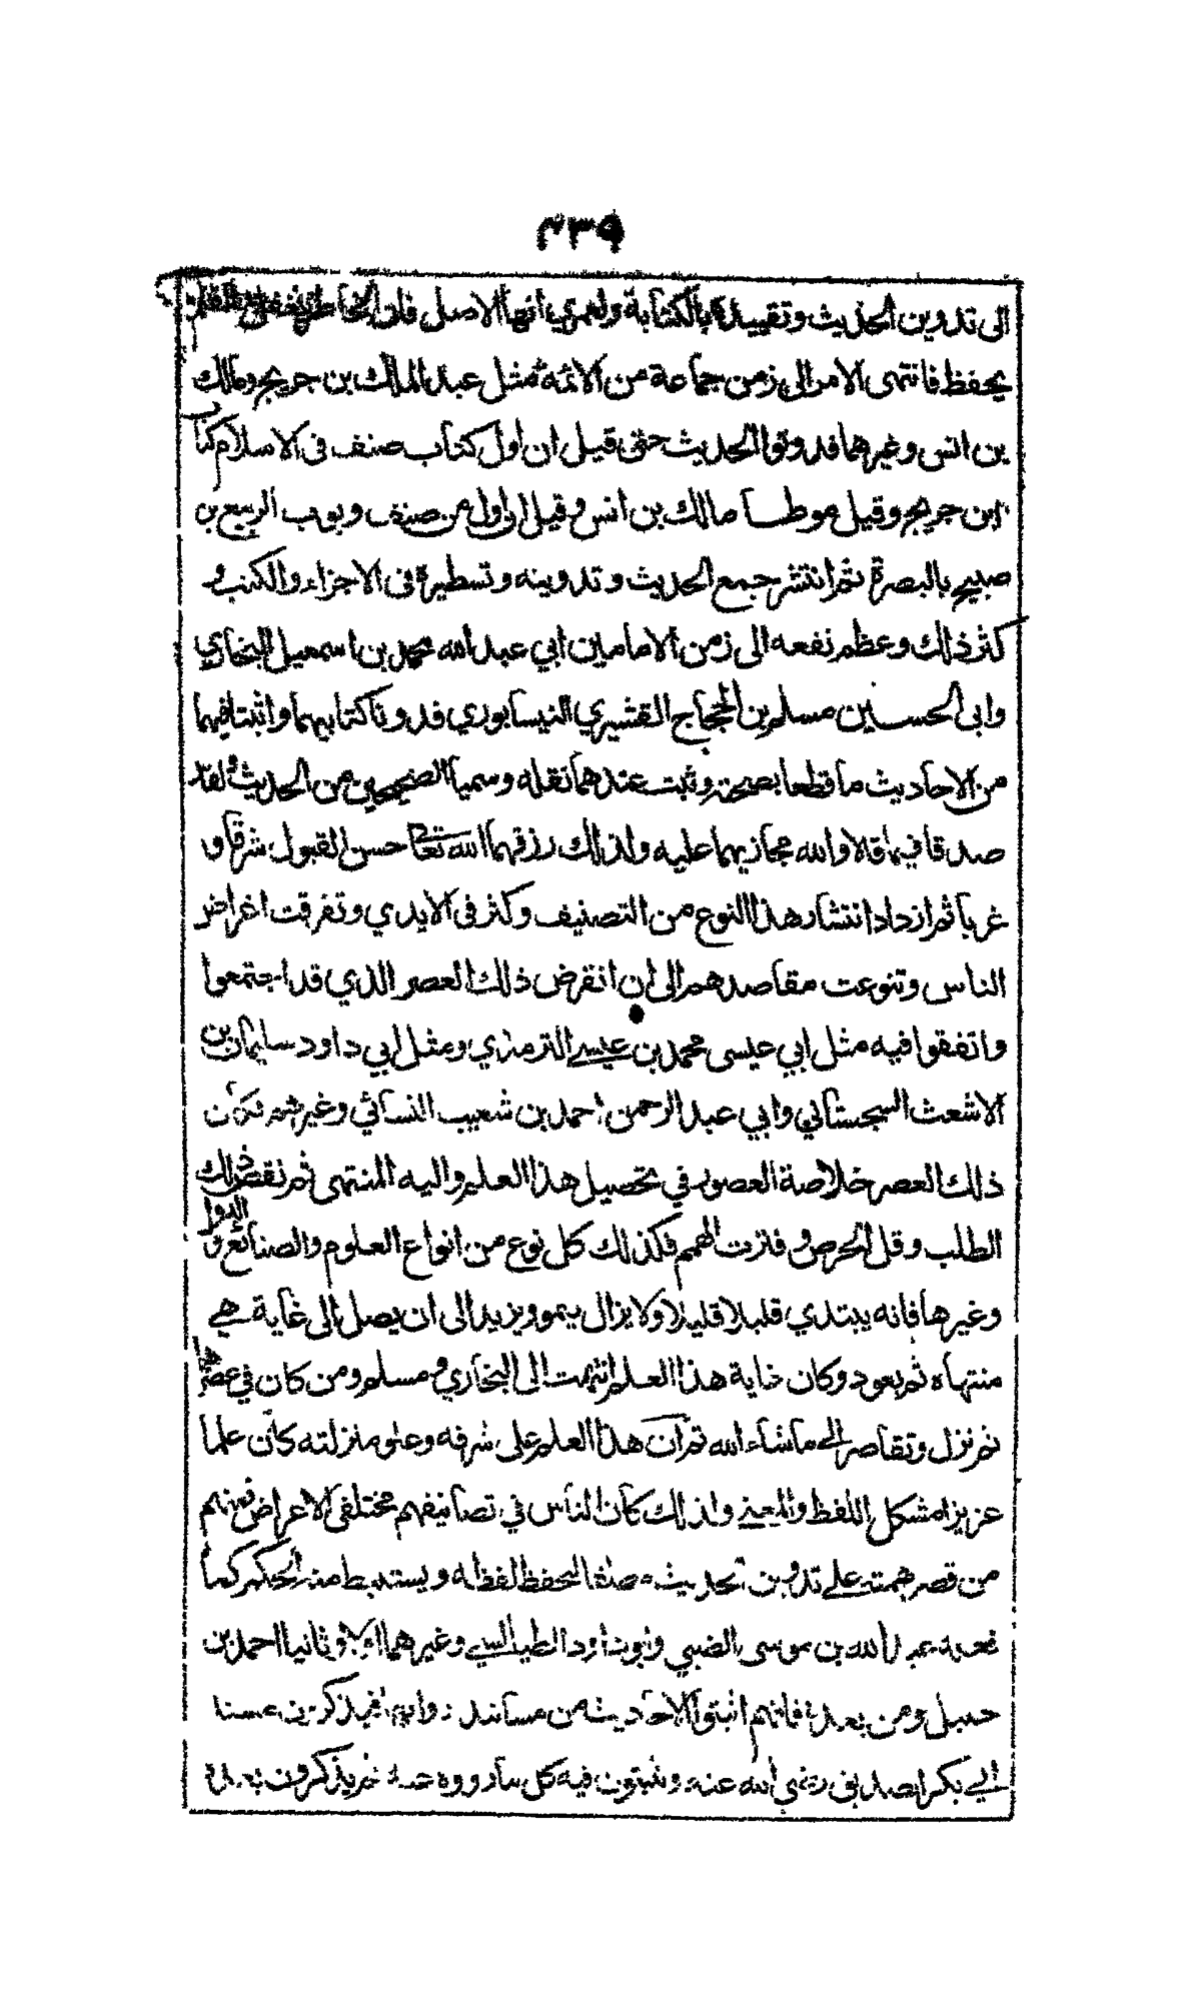 ٤٣٩
الى تدوين الحديث وتقييده بالكتابة ولعمري انها الاصل فان الخاطر يغفل والقلم
يحفظ فانتهى الامر الى زمن جماعة من الائمة مثل عبد الملك بن جريج ومالك
بن انس وغيرهما فدونوا الحديث حتى قيل ان اول كتاب صنف في الاسلام كتاب
ابن جريج وقيل موطا مالك بن انس وقيل ان اول من صنف وبوب الربيع بن
صبيح بالبصرة ثم انتشر جمع الحديث وتدوينه وتسطيره في الاجزاء والكتب و
كثر ذلك وعظم نفعه الى زمن الامامين ابي عبد الله محمد بن اسمعيل البخاري
وابي الحسين مسلم بن الحجاج القشيري النيسابوري فدونا كتابيهما واثبتا فيهما
من الاحاديث ما قطعا بصحته وثبت عندهما نقله وسميا الصحيحين من الحديث ولقد
صدقا فيما قالا والله مجازيهما عليه ولذلك رزقهما الله تعالى حسن القبول شرقا و
غربا ثم ازداد انتشار هذا النوع من التصنيف وكثر في الايدي وتفرقت اغراض
الناس وتنوعت مقاصدهم الى ان انقرض ذلك العصر الذي قد اجتمعوا
واتفقوا فيه مثل ابي عيسى محمد بن عيسى الترمذي ومثل ابي داود سليمان بن
الاشعث السجستاني وابي عبد الرحمن احمد بن شعيب النسائي وغيرهم فكان
ذلك العصر خلاصة العصور في تحصيل هذا العلم واليه المنتهى ثم نقص ذلك
الطلب وقل الحرص وفترت الهمم فكذلك كل نوع من انواع العلوم والصنائع و الدول
وغيرها فانه يبتدي قليلا قليلا ولا يزال ينمو ويزيد الى ان يصل الى غاية هي
منتهاه ثم يعود وكان غاية هذا العلم انتهت الى البخاري ومسلم ومن كان في عصرهما
ثم نزل وتقاصر الى ما شاء الله ثم ان هذا العلم على شرفه وعلو منزلته كان علما
عزيزا مشكل اللفظ والمعنى ولذلك كان الناس في تصانيفهم مختلفي الاغراض فمنهم
من قصر همته على تدوين الحديث مطلقا لحفظ لفظه ويستنبط منه الحكم كما
فعله عبد الله بن موسى الضبي وابو داود الطيالسي وغيرهما اولا وثانيا احمد بن
حنبل ومن بعده فانهم اثبتوا الاحاديث من مساند رواتها فيذكرون مسند
ابي بكر الصديق رضي الله عنه ويثبتون فيه كل ما رووه عنه ثم يذكرون بعده